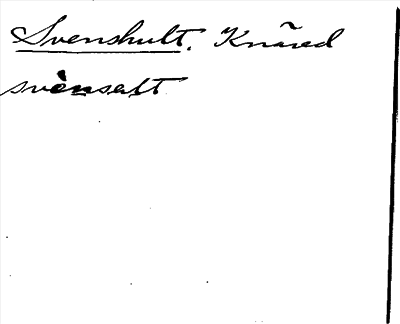 Svenshult, Knäred
svènsalt